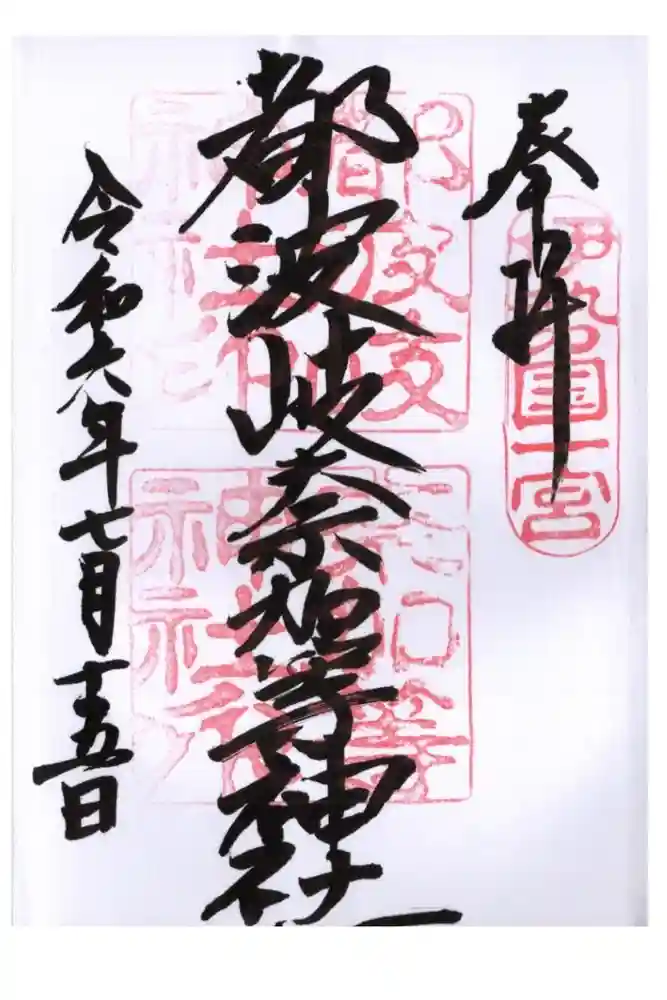 奉拝
伊勢国一宮
都波岐奈加等神社
令和六年七月十五日